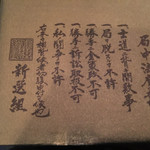 局中法度
一士道ニ背キ間敷事
一局ヲ脱スルヲ不許
一勝手ニ金策致不可
一勝手ニ訴訟取扱不可
一私ノ闘争ヲ不許
右条々相背候者切腹申付ベク候也
新選組